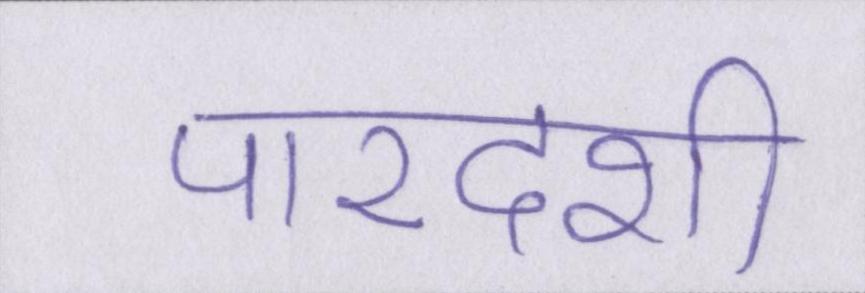 पारदशी